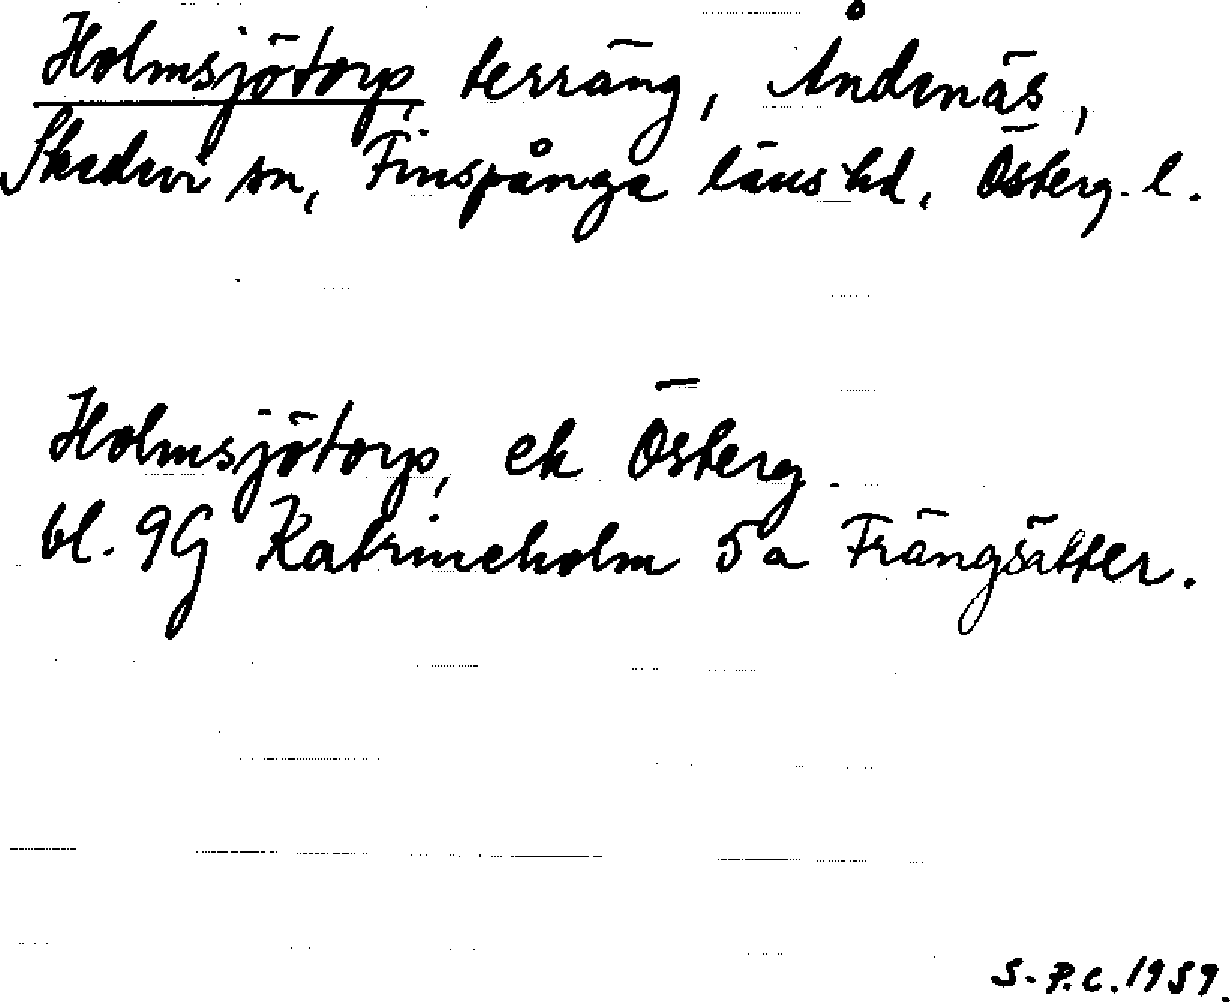 Holmsjötorp, terräng, Åndenäs,
Skedevi sn, Finspånga läns hd, Österg. l.
Holmsjötorp, ek Österg.
bl. 9G Katrineholm 5a Frängsätter.
S-P.C. 1959.